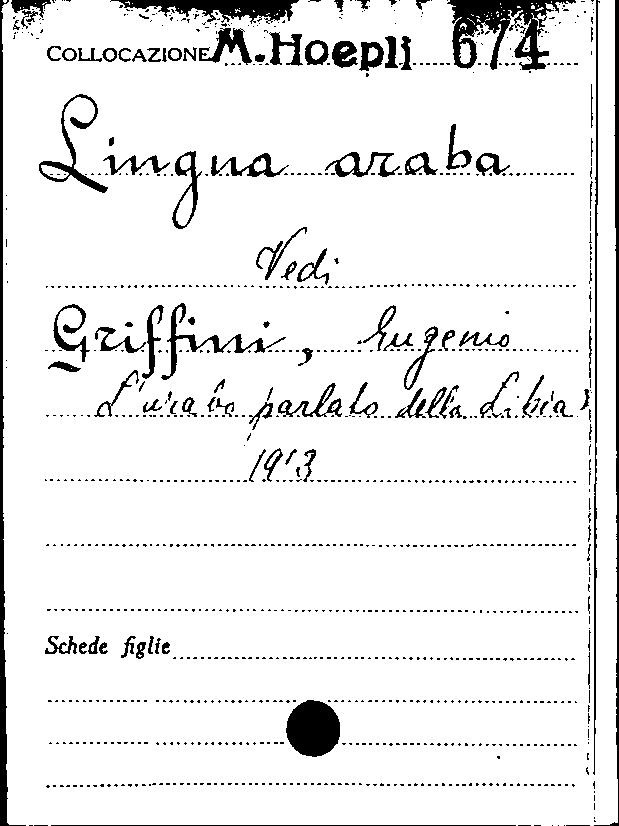 COLLOCAZIONE M. Hoepli 674
Lingua araba
Vedi
Griffini, Eugenio
L'arabo parlato della Libia
1913
Schede figlie